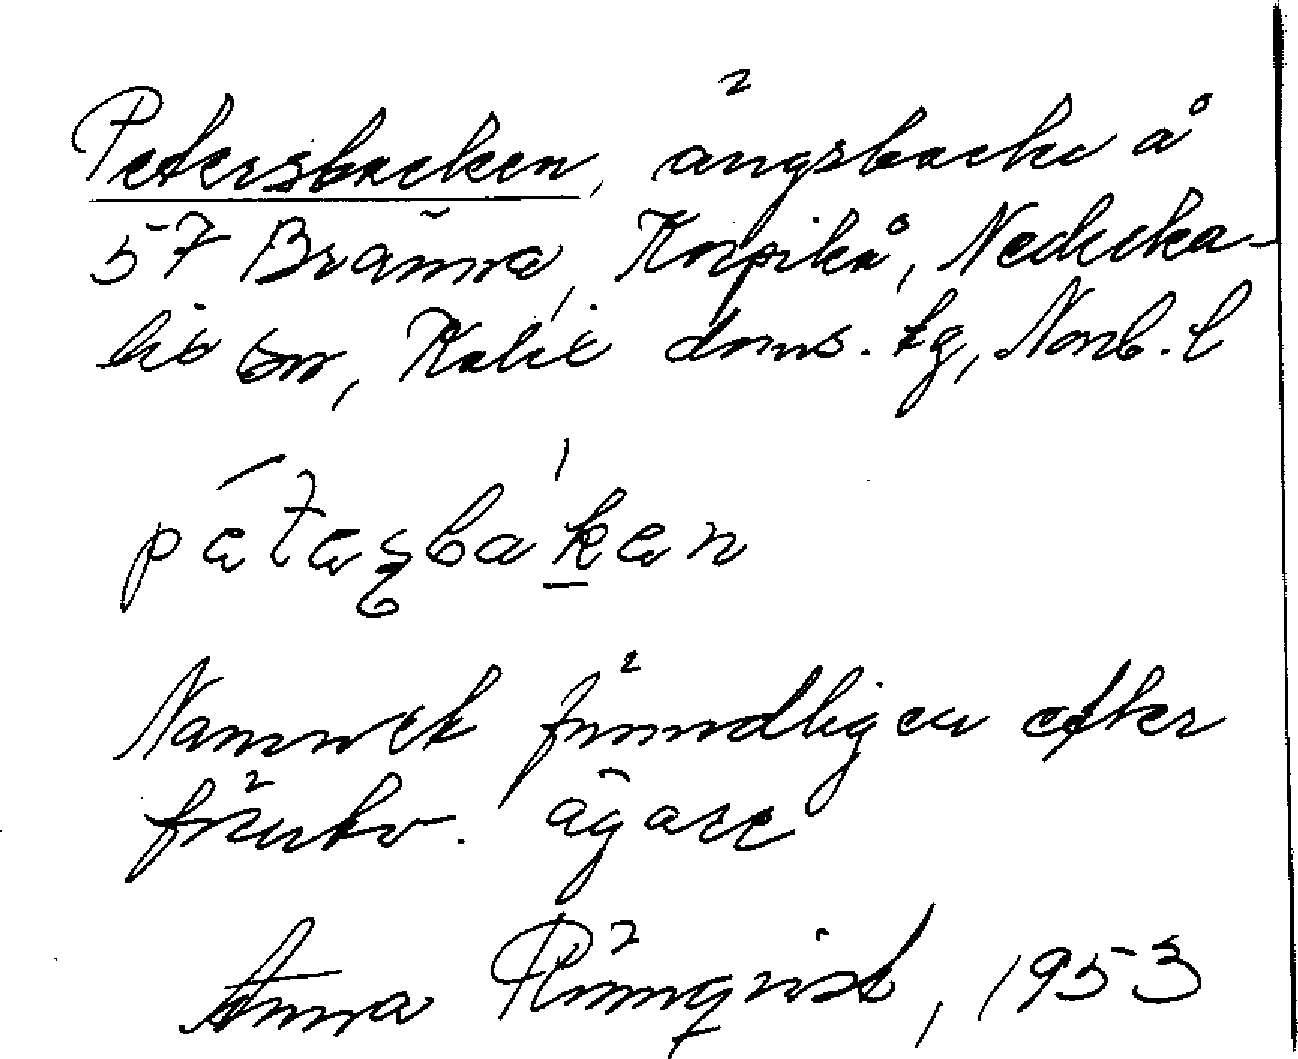 Petersbacken, ängsbacke å
57 Bränna, Korpikå, Nederka-
lix sn, Kalix doms. tg, Norb. l
Namnet förmodligen efter
förutv. ägare
Anna Rönnqvist, 1953